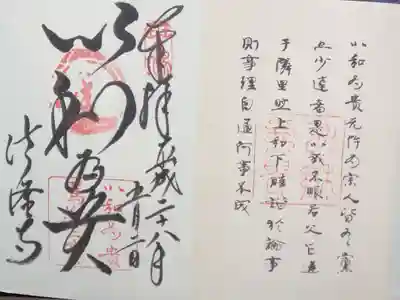 奉拝 平成二十八年
五月二日
以和為貴
法隆寺
以和為貴
以和為貴无忤為宗人皆有黨
亦少達者是以或不順君父乍違
于隣里然上和下睦諧於論事
則事理自通何事不成